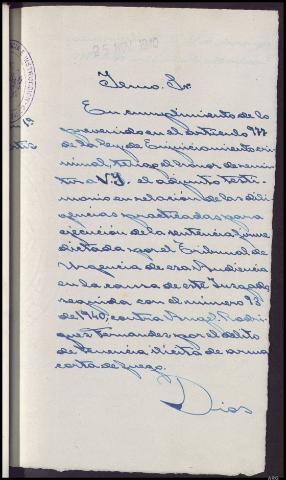 25 NOV 1940
Ilmo. Sr.
En cumplimiento de lo
prevenido en el articulo 977
de la Ley de Enjuiciamiento cri-
minal, tengo el honor de remi-
tir a V.I. el adjunto testi-
monio en relación de las dili-
gencias practicadas para
ejecución de la sentencia firme
dictada por el Tribunal de
Urgencia de esa Audiencia
en la causa de este Juzgado,
seguida con el número 92
de 1940, contra Angel Rodri-
guez Fernandez por el delito
de tenencia ilícita de arma
corta de fuego.
Dios